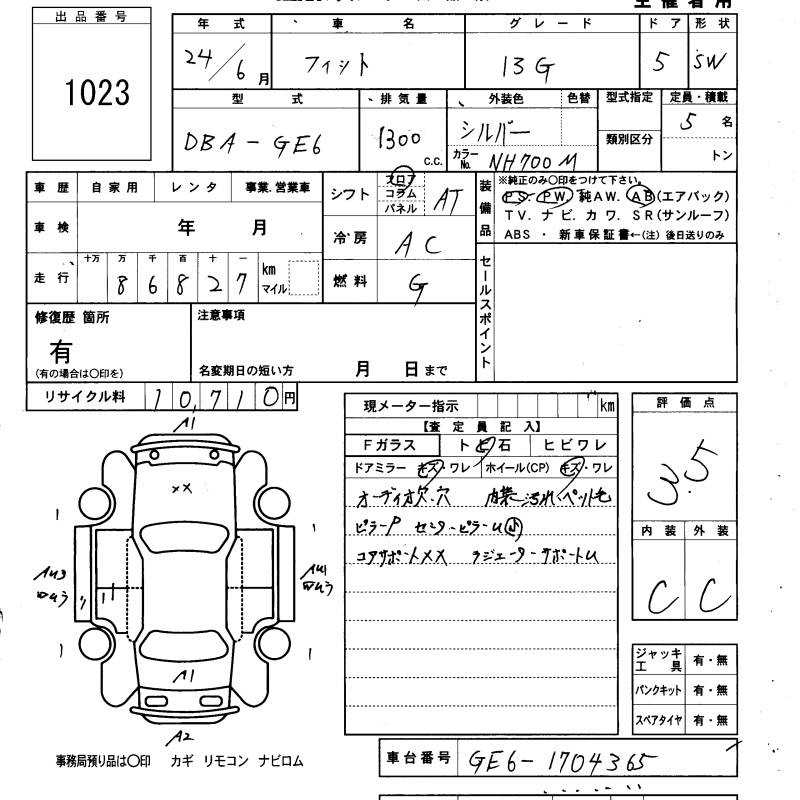 主催者用
出品番号
1023
年式 車名 グレード ドア 形状
24/6月 フィット 13G 5 SW
型式 排気量 外装色 色替 型式指定 定員・積載
DBA-GE6 1300 c.c. シルバー 5名
類別区分
カラーNo. NH700M トン
車歴 自家用 レンタ 事業.営業車
シフト フロア コラム パネル AT
装備品
※純正のみ〇印をつけて下さい。
PS. PW. 純AW. AB(エアバック)
TV. ナビ. カワ. SR(サンルーフ)
ABS ・ 新車保証書←(注) 後日送りのみ
車検 年 月
冷房 AC
走行 十万 万 千 百 十 一
8 6 8 2 7 km マイル
燃料 G
セールスポイント
修復歴 箇所
有
(有の場合は〇印を)
注意事項
名変期日の短い方 月 日まで
リサイクル料 10,710円
現メーター指示 km
【査定員記入】
Fガラス トビ石 ヒビワレ
ドアミラー キズ・ワレ ホイール(CP) キズ・ワレ
オーディオ欠.穴 内装汚れ ペット毛
ピラーP センターピラーU小
コアサポートXX ラジエーターサポートU
評価点
3.5
内装 外装
C C
A1
XX
AU3
AU1
A1
A2
ジャッキ工具 有・無
パンクキット 有・無
スペアタイヤ 有・無
事務局預り品は〇印 カギ リモコン ナビロム
車台番号 GE6-1704365